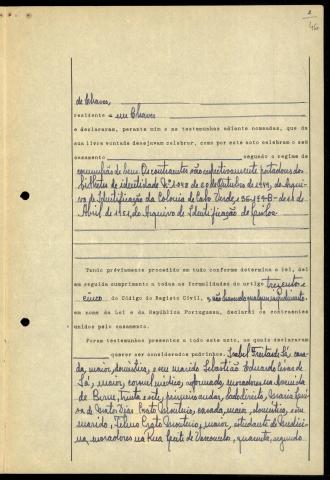 2
de Chaves,
residente em Chaves
e declararam, perante mim e as testemunhas adiante nomeadas, que da
sua livre vontade desejavam celebrar, como por este acto celebram o seu
casamento segundo o regime de
comunhão de bens. Os contraentes são respectivamente portadores dos
bilhetes de identidade Nº de Outubro de do Arqui-
vo de Identificação da Colónia de Cabo Verde, e de
Abril de do Arquivo de Identificação de Lisboa.
Tendo préviamente procedido em tudo conforme determina a lei, dei
em seguida cumprimento a todas as formalidades do artigo trezentos e
cinco do Código do Registo Civil, e não havendo qualquer impedimento
em nome da Lei e da República Portuguesa, declarei os contraentes
unidos pelo casamento.
Foram testemunhas presentes a todo este acto, as quais declararam
querer ser considerados padrinhos, Isabel Freitas de Sá, ca-
sada, maior, doméstica, e seu marido Sebastião Eduardo César de
Sá, maior, coronel médico, reformado, moradores na Avenida
de Berne, trinta e sete, primeiro andar, lado direito, Maria
de Matos Dias Crato Monteiro, casada, maior, doméstica, e seu
marido, Telmo Crato Monteiro, maior, estudante de Medici-
na, moradores na Rua Gentil de Vasconcelos, quarenta, segundo.